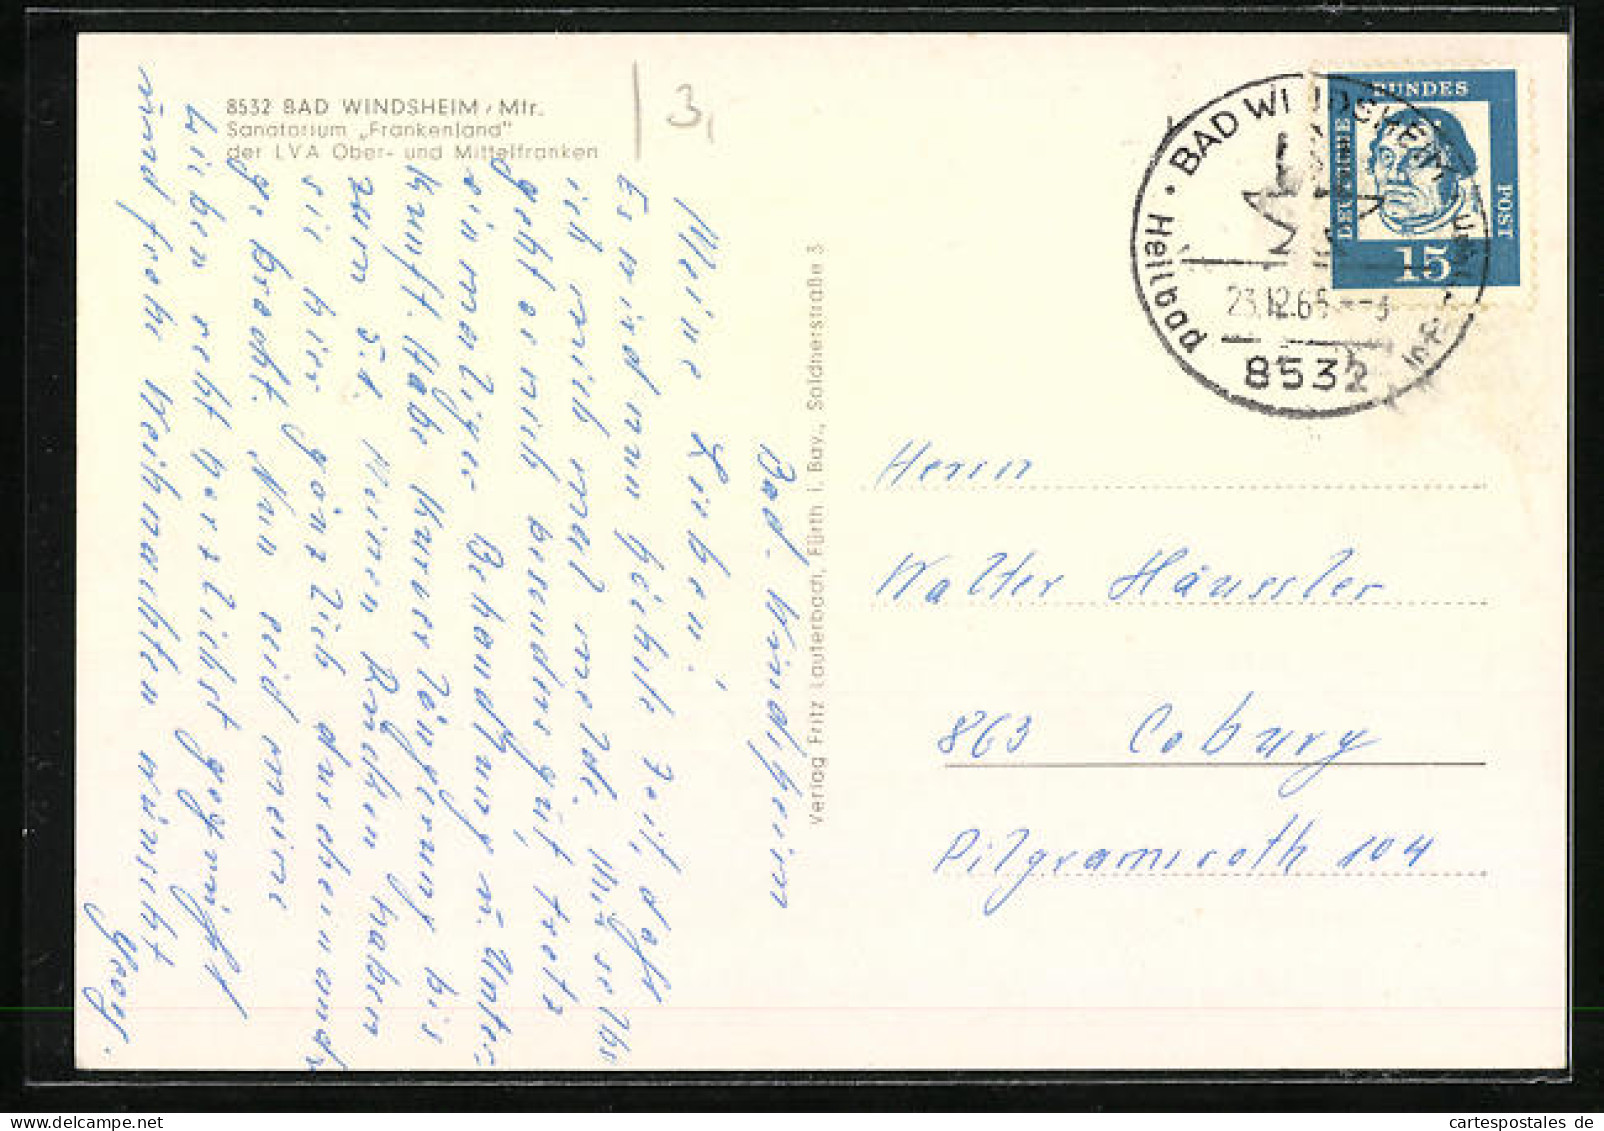 8532 BAD WINDSHEIM / Mfr.
Sanatorium „Frankenland"
der LVA Ober- und Mittelfranken
3,
Bad. Windsheim
Meine Lieben!
Es wird nun höchste Zeit, daß
ich mich mal melde. Mir selbst
geht es nich besonders gut, trotz
einmaliger Behandlung u. Unter,
kunft. Habe Kurverlängerung bis
zum 5.1. Meinen Rachen haben
sie hier gänzlich durcheinander
gebracht. Nun seid meine
Lieben recht herzlichst gegrüßt
und frohe Weihnachten wünscht
Verlag Fritz Lauterbach, Fürth i. Bay., Soldnerstraße 3
BAD WINDSHEIM
Heilbad
23.12.65
8532
DEUTSCHE
BUNDES
POST
15
Herrn
Walter Häussler
863 Coburg
Pilgramsroth 104
cartespostales de